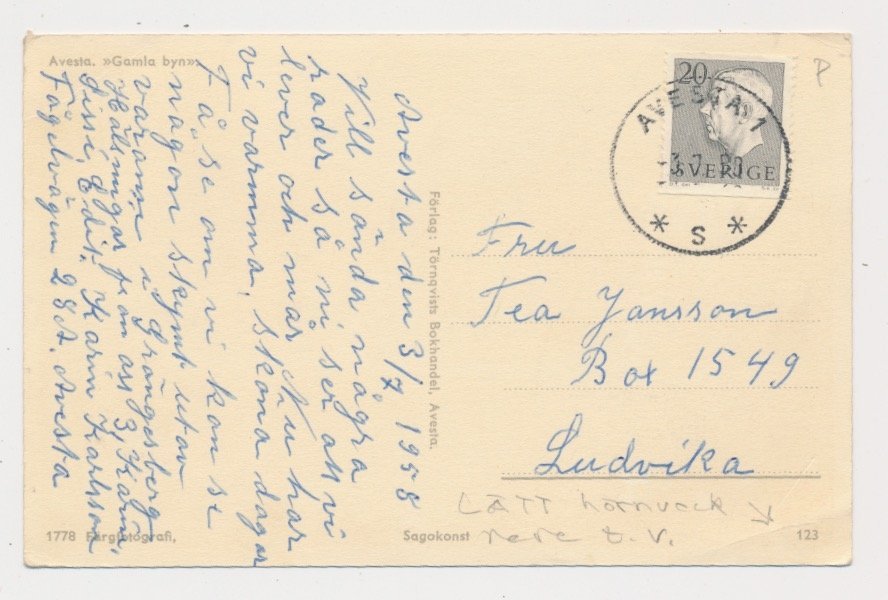 Avesta. »Gamla byn».
Avesta den 3/7 1958
Vill sända några
rader så ni ser att vi
lever och mar. Nu har
vi varmma, sköna dagar
Få se om vi kan se
någon skymt utav
varann i Grängesberg
Hälsningar från oss 3, Karin,
Sissi, Edit. Karin Karlsson
Fågelvägen 28A. Avesta
1778 Färgfotografi,
Förlag: Törnqvists Bokhandel, Avesta.
Sagokonst
20
SVERIGE
AVESTA 1
3.7.58
* S *
P
Fru
Tea Jansson
Box 1549
Ludvika
LÄTT hörnveck
nere t.v.
123